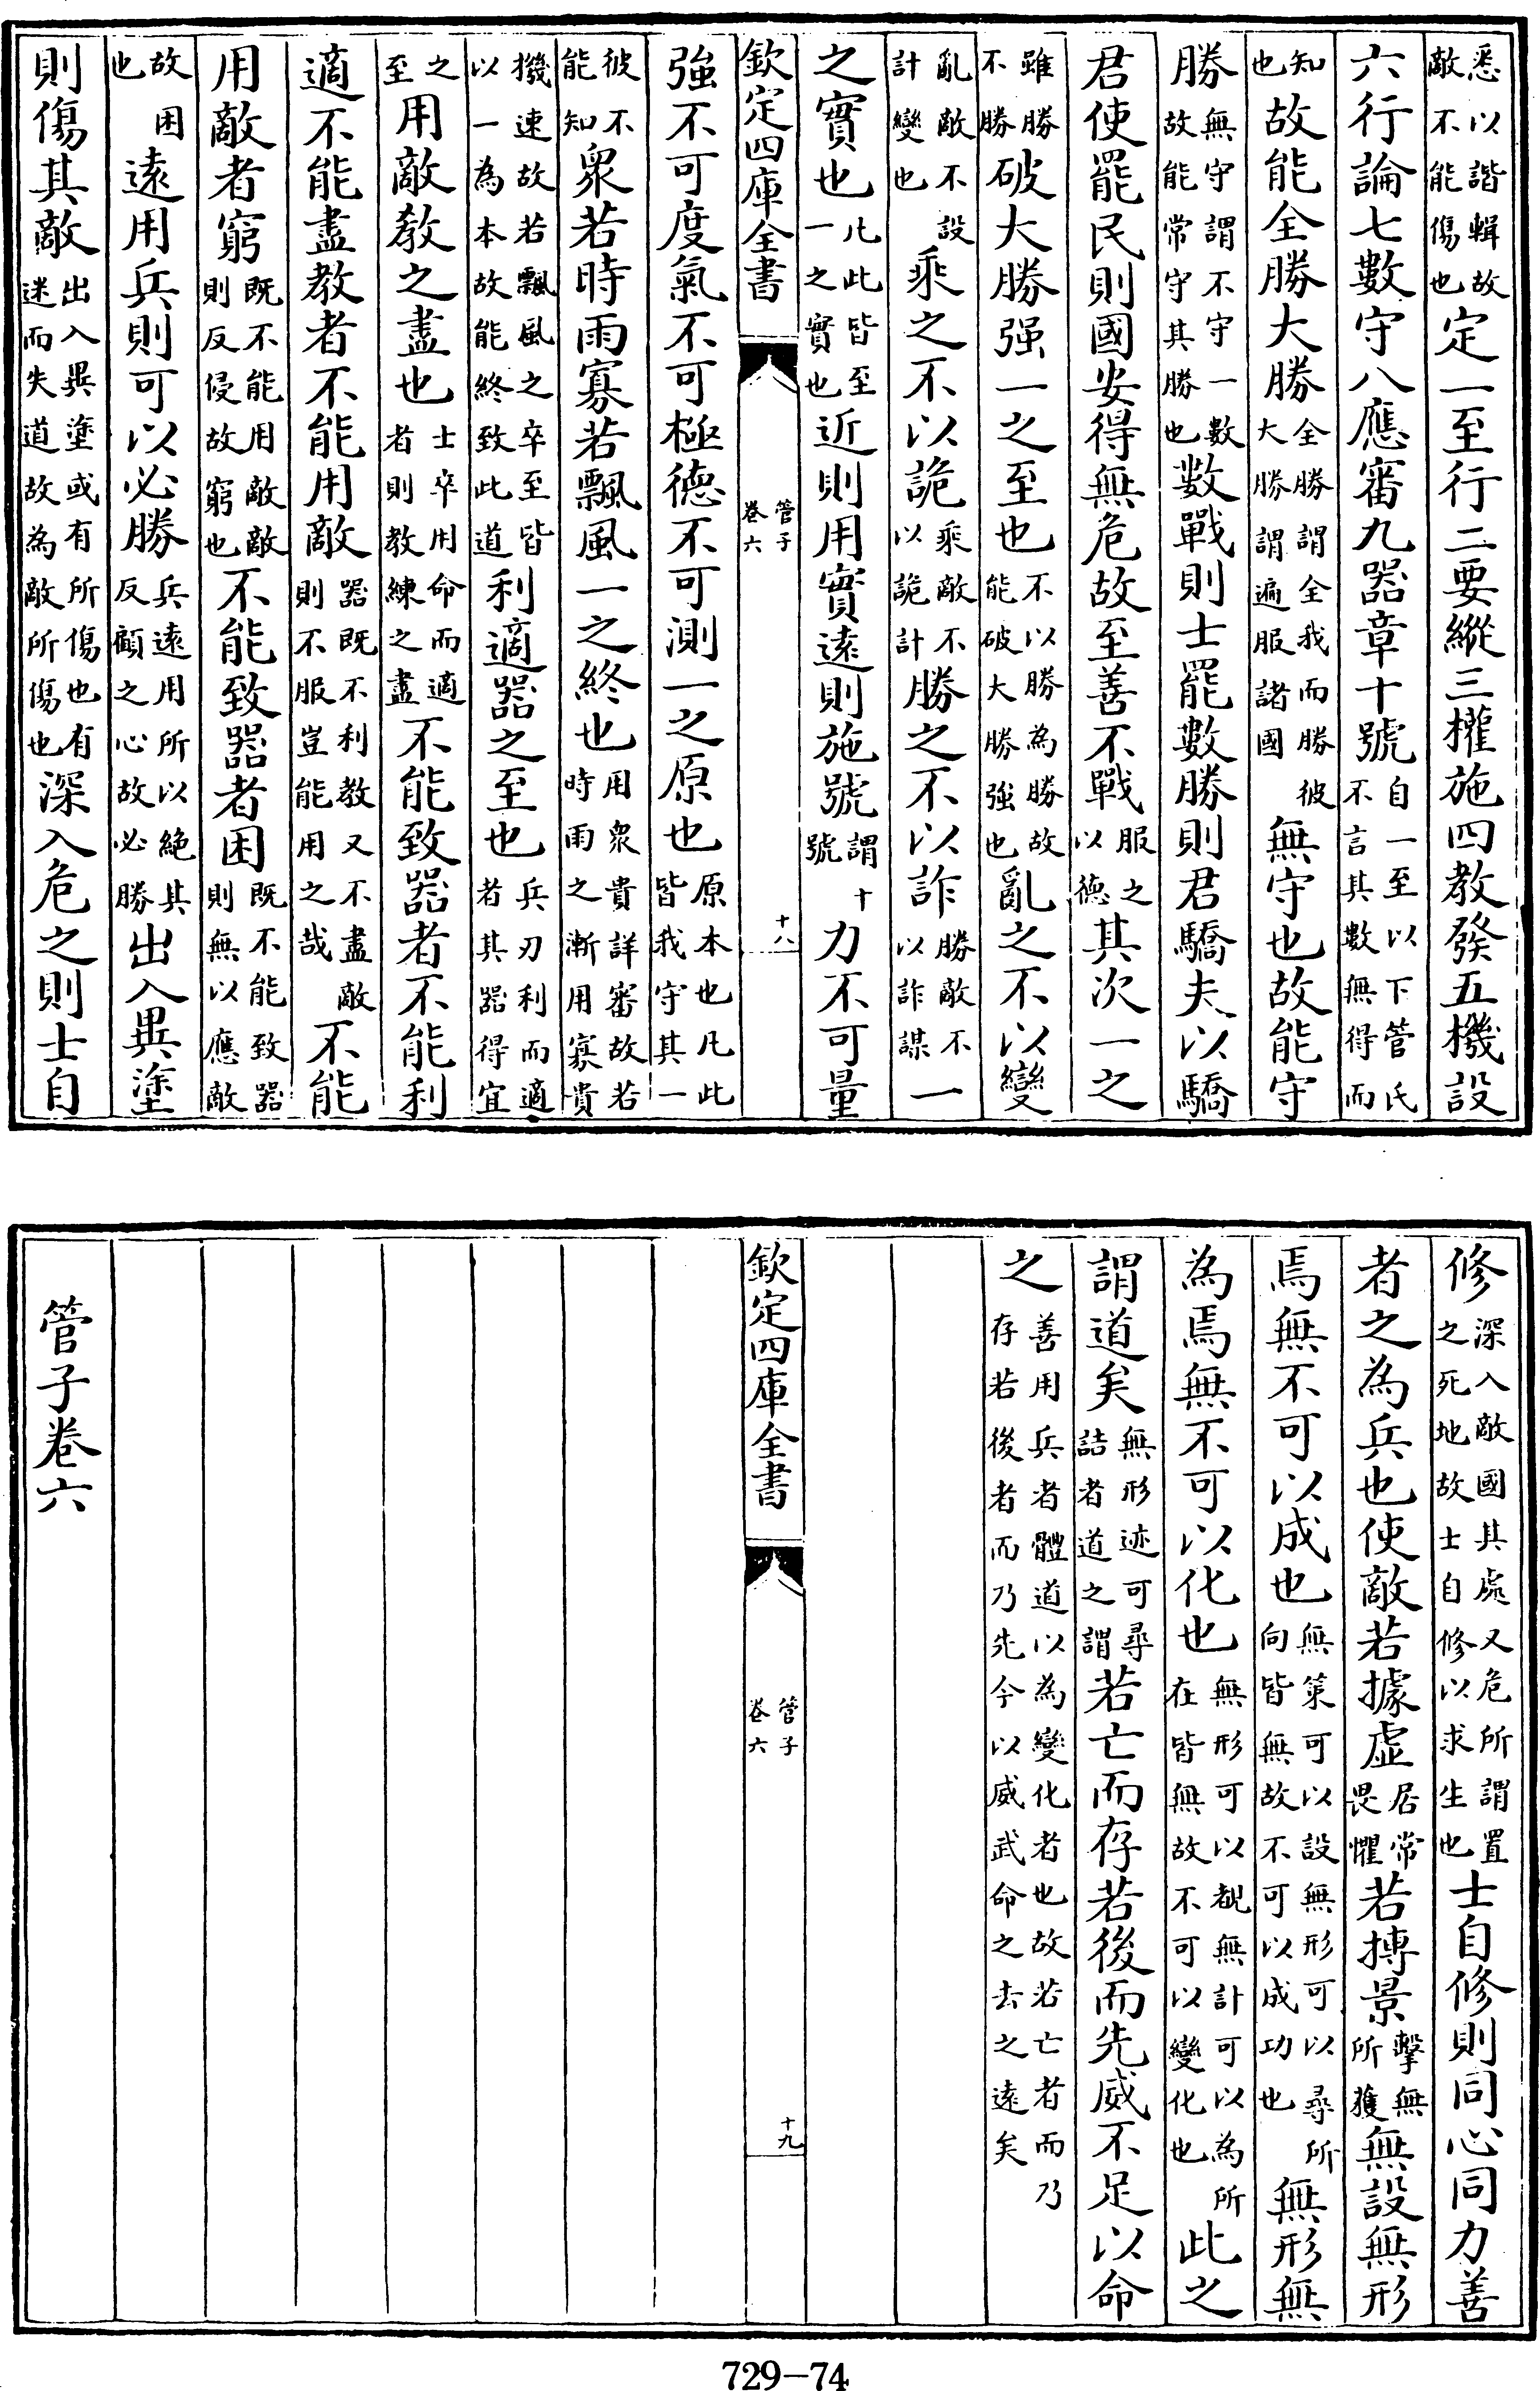 悉以諧輯故敵不能傷也定一至行二要縱三權施四教發五機設
六行論七數守八應審九器章十號自一至以下管氏不言其數無得而
知也故能全勝大勝全勝謂全我而勝彼大勝謂遍服諸國無守也故能守
勝無守謂不守一數故能常守其勝也數戰則士罷數勝則君驕夫以驕
君使罷民則國安得無危故至善不戰服之以德其次一之
雖勝不勝破大勝强一之至也不以勝為勝故能破大勝強也亂之不以變
亂敵不設計變也乘之不以詭乘敵不以詭計勝之不以詐勝敵不以詐謀一
之實也凡此皆至一之實也近則用實遠則施號謂十號力不可量
欽定四庫全書 管子卷六 十八
強不可度氣不可極德不可測一之原也原本也凡此皆我守其一
彼不能知衆若時雨寡若飄風一之終也用衆貴詳審故若時雨之漸用寡貴
機速故若飄風之卒至皆以一為本故能終致此道利適器之至也兵刃利而適者其器得宜
之至用敵教之盡也士卒用命而適者則教練之盡不能致器者不能利
適不能盡教者不能用敵器既不利教又不盡敵則不服豈能用之哉不能
用敵者窮既不能用敵敵則反侵故窮也不能致器者困既不能致器則無以應敵
故困也遠用兵則可以必勝兵遠用所以絶其反顧之心故必勝出入異塗
則傷其敵出入異塗或有所傷也有迷而失道故為敵所傷也深入危之則士自
修深入敵國其處又危所謂置之死地故士自修以求生也士自修則同心同力善
者之為兵也使敵若據虛居常畏懼若搏景擊無所獲無設無形
焉無不可以成也無策可以設無形可以尋所向皆無故不可以成功也無形無
為焉無不可以化也無形可以覩無計可以為所在皆無故不可以變化也此之
謂道矣無形迹可尋詰者道之謂若亡而存若後而先威不足以命
之善用兵者體道以為變化者也故若亡者而乃存若後者而乃先今以威武命之去之遠矣
欽定四庫全書 管子卷六 十九
管子卷六
729-74